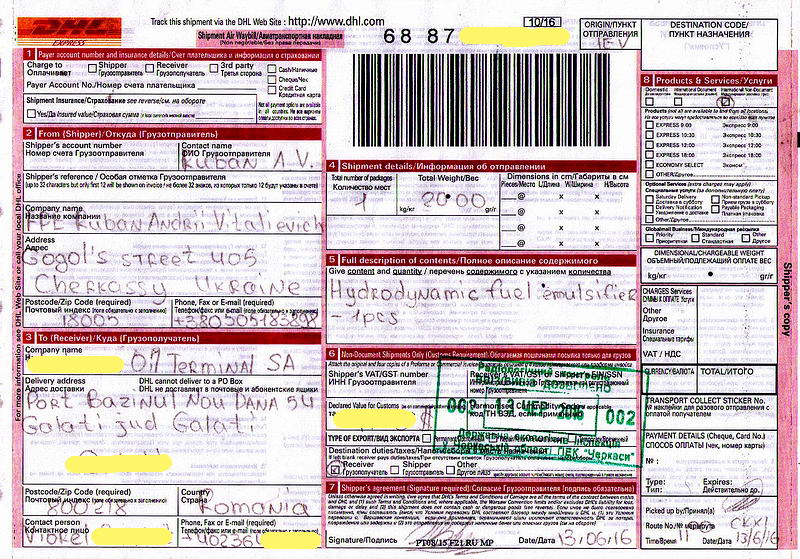 DHL
EXPRESS
Track this shipment via the DHL Web Site : http://www.dhl.com
Shipment Air Waybill/Авиатранспортная накладная
(Non negotiable/Без права передачи)
10/16
68 87
ORIGIN/ПУНКТ
ОТПРАВЛЕНИЯ
IEV
DESTINATION CODE/
ПУНКТ НАЗНАЧЕНИЯ
1 Payer account number and insurance details/Счет плательщика и информация о страховании
Charge to
Оплачивает
Shipper
Грузоотправитель
Receiver
Грузополучатель
3rd party
Третья сторона
Cash/Наличные
Cheque/Чек
Credit Card
Кредитная карта
Payer Account No./Номер счета плательщика
Shipment Insurance/Страхование see reverse/см. на обороте
Yes/Да Insured value/Страховая сумма
Not all payment options are available in all countries.
2 From (Shipper)/Откуда (Грузоотправитель)
Shipper's account number
Номер счета Грузоотправителя
Contact name
ФИО Грузоотправителя
Kuban A.V.
Shipper's reference / Особая отметка Грузоотправителя
(up to 32 characters but only first 12 will be shown on invoice / не более 32 знаков, из которых только 12 будут указаны в счете)
Company name
Название компании
Kuban Andrii Vitalievich
Address
Адрес
Gogol's street 405
Cherkassy Ukraine
Postcode/Zip Code (required)
Почтовый индекс (поле обязательно к заполнению)
18005
Phone, Fax or E-mail (required)
3 To (Receiver)/Куда (Грузополучатель)
Company name
Oil Terminal SA
Delivery address
Адрес доставки
DHL cannot deliver to a PO Box
DHL не доставляет в почтовые и абонентские ящики
Port Bazinul Nou Dana 54
Galati jud Galati
Postcode/Zip Code (required)
Почтовый индекс (поле обязательно к заполнению)
Country
Страна
Romania
Contact person
Контактное лицо
Viorel
Phone, Fax or E-mail (required)
402361
4 Shipment details/Информация об отправлении
Total number of packages
Количество мест
1
Total Weight/Вес
20 00
kg/кг
gr/г
Dimensions in cm/Габариты в см
Pieces/Место
L/Длина
W/Ширина
H/Высота
@ x x
@ x x
@ x x
5 Full description of contents/Полное описание содержимого
Give content and quantity / перечень содержимого с указанием количества
Hydrodynamic fuel emulsifier
- 1pcs
6 Non-Document Shipments Only (Customs Requirement)/Облагаемая пошлинами посылка только для грузов
Shipper's VAT/GST number
ИНН Грузоотправителя
Declared Value for Customs
$
002
TYPE OF EXPORT/ВИД ЭКСПОРТА
Destination duties/taxes
Receiver
Грузополучатель
Shipper
Грузоотправитель
Other
Другое
ПЕК "Черкаси"
7 Shipper's agreement (Signature required)/Согласие Грузоотправителя (подпись обязательна)
Signature/Подпись
PT08/15 F21 RU MP
Date/Дата
13/06/16
8 Products & Services/Услуги
Domestic
International Document
International Non-Document
EXPRESS 9:00 Экспресс 9:00
EXPRESS 10:30 Экспресс 10:30
EXPRESS 12:00 Экспресс 12:00
EXPRESS 18:00 Экспресс 18:00
ECONOMY SELECT Эконом
OTHER/Другое
Optional Services (extra charges may apply)
Saturday Delivery
Доставка в субботу
Delivery Notification
Уведомление о доставке
Other/Другое
Non-standard Pickup
Payable Packaging
Платная упаковка
Globalmail Business/Международная рассылка
Priority
Приоритетная
Standard
Стандартная
Other
Другое
DIMENSIONAL/CHARGEABLE WEIGHT
ОБЪЕМНЫЙ/ПОДЛЕЖАЩИЙ ОПЛАТЕ ВЕС
kg/кг
gr/г
CHARGES Services
Other
Другое
Insurance
VAT / НДС
CURRENCY/ВАЛЮТА
TOTAL/ИТОГО
TRANSPORT COLLECT STICKER No.
PAYMENT DETAILS (Cheque, Card No.)
СПОСОБ ОПЛАТЫ (чек, номер карты)
№ :
Type:
Тип:
Expires:
Действительно до.
Picked up by/Принял(а)
Route No./№ маршрута
Time/Время
Date/Дата
13/6/16
Shipper's copy
For more information see DHL Web Site or call your local DHL office